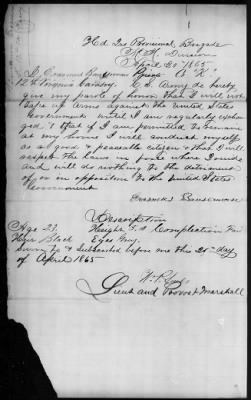 Hd Qrs Provisional Brigade
April 20 1865
I Erasmus Bouseman Private Co "K"
12th Virginia Cavalry C. S. Army do hereby
give my parole of honor that I will not
take up arms against the United States
Government until I am regularly exchan
ged & that if I am permitted to remain
at my home I will conduct myself
as a good & peaceable citizen & that I will
respect the laws in force where I reside
and will do nothing to the detriment
of or in opposition to the United States
Government
Erasmus
Description
Age 27, Height 5.8 Complexion Fair
Hair Black Eyes Grey
Sworn to & Subscribed before me this 20th day
of April 1865
Lieut and Provost Marshall